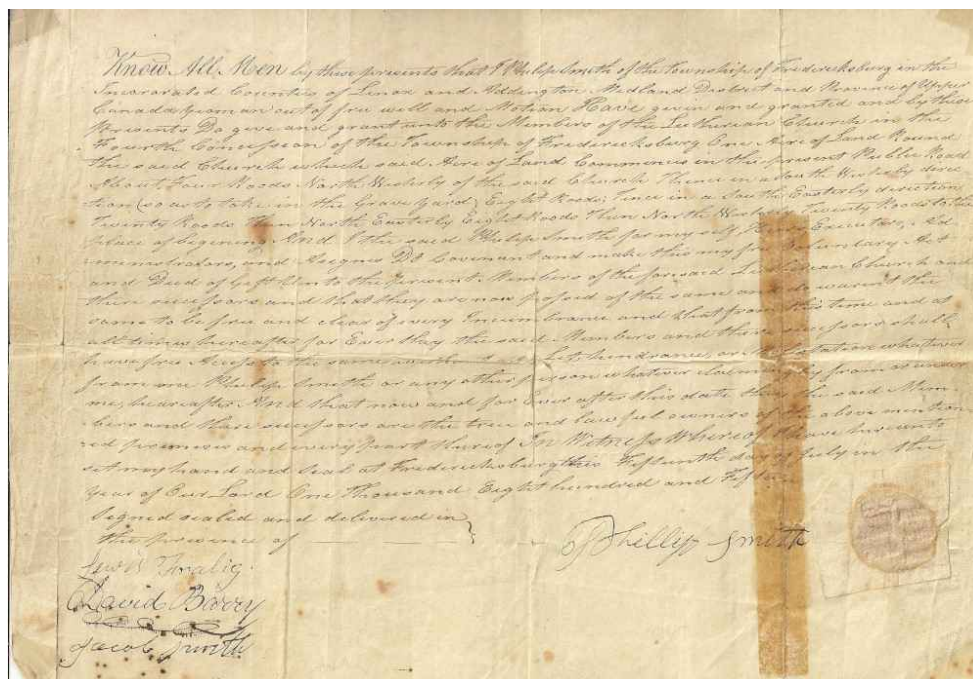 Know All Men by these presents that I Philip Smith of the Township of Fredericksburg in the
Incorarated Counties of Lenox and Addington Medland District and Province of Upper
Canada Yeoman out of free will and Motion Have givin and granted and by these
Presents Do give and grant unto the Members of the Lutherian Church in the
Fourth Concession of the Township of Fredericksburg One Acre of Land Round
the said Church which said Acre of Land Commincis in the present Public Road
About Four Roods North Westerly of the said Church Thence in a South Westerly direc
tion (so as to take in the Grave Yard) Eight Roods, Thence in a South Easterly direction
Twenty Roods then North Easterly Eight Roods Then North Twenty Roods to the
place of begining And I the said Philip Smith for myself, Executors, Ad
ministrators, and Asignes Do Covinant and make this my Act
and Deed of Gift Unto the Present Members of the forsaid Lutherian Church and
there successors and that they are now posesed of the same and do warent the
same to be free and clear of every Incumbrance and that from this time and at
all times hereafter for Ever they the said Members and there successors shall
have free Acess to the same Let hindrance, or Molistation whatever
from me Philip Smith or any other person whatever claiming by from or under
me, hereafter And that now and for Ever after this date they the said Mem
bers and there successors are the true and lawful owners of the above mention
ed premises and every part thereof In Witness Whereof I have hereunto
set my hand and Seal at Fredericksburg this Fifteenth day of July in the
Year of Our Lord One Thousand Eight hundred and
Signed sealed and delivered in
the presence of
Phillip Smith
Lewis
David Barry
Jacob Smith